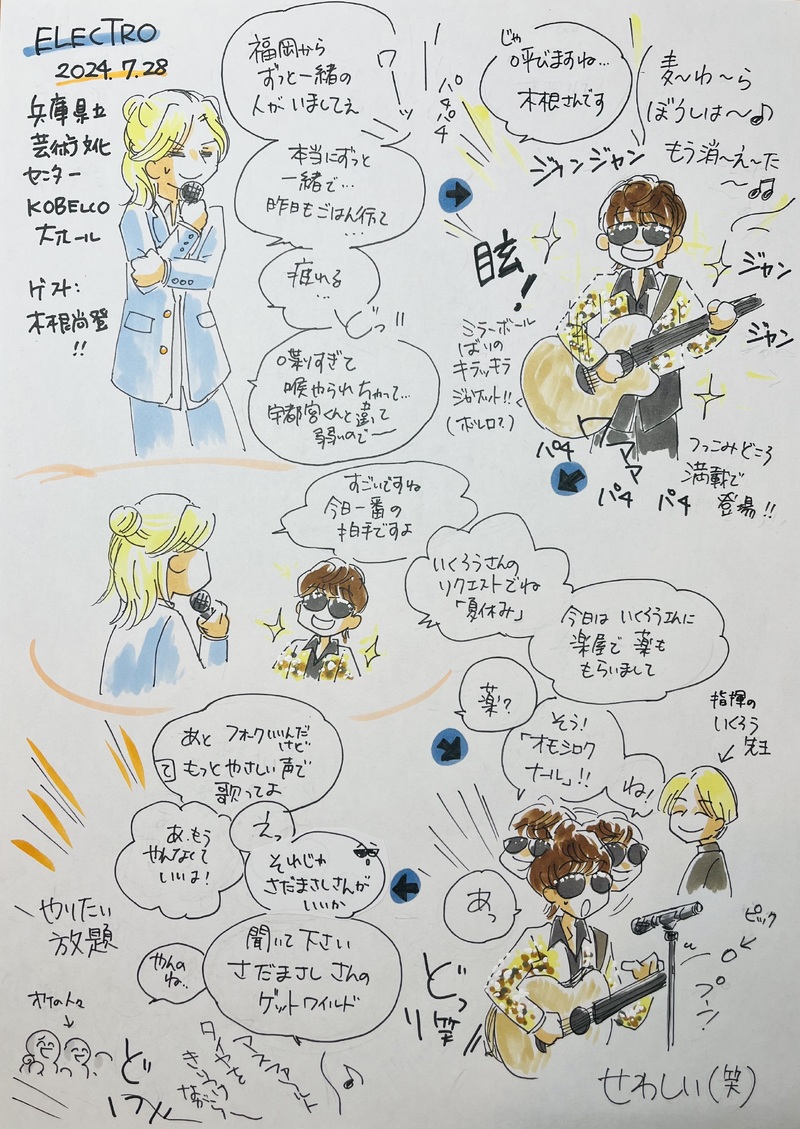 ELECTRO
2024.7.28
兵庫県立
芸術文化
センター
KOBELCO
大ホール
ゲスト:
木根尚登
!!
福岡から
ずっと一緒の
人がいましてぇ
ワーッ
本当にずっと
一緒で…
昨日もごはん行って
…
疲れる
…
どっ!!
喋りすぎて
喉やられちゃって…
宇都宮くんと違って
弱いので〜
じゃ
呼びますね…
木根さんです
パチパチ
麦〜わ〜ら
ぼうしは〜♪
もう消〜え〜た
〜♫
ジャンジャン
ジャン
ジャン
眩!
ミラーボール
ばりの
キラッキラ
ジャケット!!
(ボレロ?)
ワーママ
パチ
パチ パチ
つっこみどころ
満載で
登場!!
すごいですね
今日一番の
拍手ですよ
いくろうさんの
リクエストでね
「夏休み」
今日はいくろうさんに
楽屋で薬も
もらいまして
薬?
そう!
「オモシロク
ナール」!!
ね!
指揮の
いくろう
先生
あっ
ピック
プーン
どっ
笑
せわしい(笑)
あと フォークいいんだ
けど
て
もっとやさしい声で
歌ってよ
えっ
あ、もう
やんなくて
いいよ!
それじゃ
さだまさしさんが
いいか
聞いて下さい
さだまさしさんの
ゲットワイルド
やんの
ね…
やりたい
放題
オケの人々
ど
アスファルト
タイヤを
きりつけ
ながら〜
♪